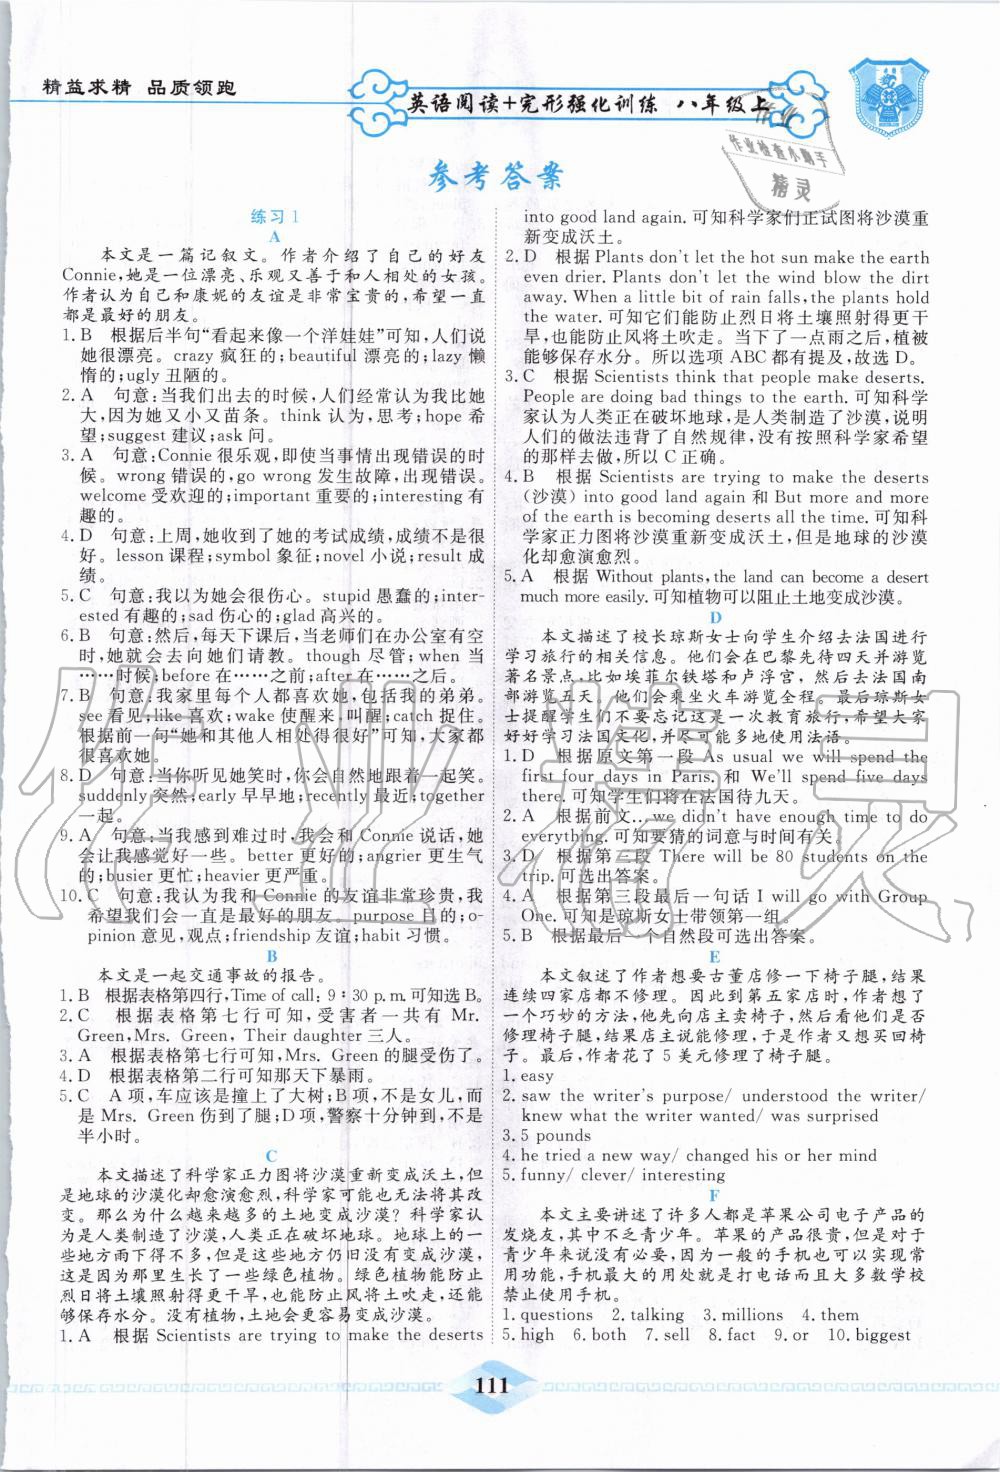 精益求精 品质领跑
英语阅读+完形强化训练 八年级上
作业
作业检查小助手
精灵
参考答案
练习1
A
本文是一篇记叙文。作者介绍了自己的好友
Connie,她是一位漂亮、乐观又善于和人相处的女孩。
作者认为自己和康妮的友谊是非常宝贵的,希望一直
都是最好的朋友。
1. B 根据后半句“看起来像一个洋娃娃”可知,人们说
她很漂亮。crazy 疯狂的;beautiful 漂亮的;lazy 懒
惰的;ugly 丑陋的。
2. A 句意:当我们出去的时候,人们经常认为我比她
大,因为她又小又苗条。think 认为,思考;hope 希
望;suggest 建议;ask 问。
3. A 句意:Connie 很乐观,即使当事情出现错误的时
候。wrong 错误的,go wrong 发生故障,出现错误。
welcome 受欢迎的;important 重要的;interesting 有
趣的。
4. D 句意:上周,她收到了她的考试成绩,成绩不是很
好。lesson 课程;symbol 象征;novel 小说;result 成
绩。
5. C 句意:我以为她会很伤心。stupid 愚蠢的;inter-
ested 有趣的;sad 伤心的;glad 高兴的。
6. B 句意:然后,每天下课后,当老师们在办公室有空
时,她就会去向她们请教。though 尽管;when 当
……时候;before 在……之前;after 在……之后。
7. B 句意:我家里每个人都喜欢她,包括我的弟弟。
see 看见;like 喜欢;wake 使醒来,叫醒;catch 捉住。
根据前一句“她和其他人相处得很好”可知,大家都
很喜欢她。
8. D 句意:当你听见她笑时,你会自然地跟着一起笑。
suddenly 突然;early 早早地;recently 最近;together
一起。
9. A 句意:当我感到难过时,我会和 Connie 说话,她
会让我感觉好一些。better 更好的;angrier 更生气
的;busier 更忙;heavier 更严重。
10. C 句意:我认为我和 Connie 的友谊非常珍贵,我
希望我们会一直是最好的朋友。purpose 目的;o-
pinion 意见,观点;friendship 友谊;habit 习惯。
B
本文是一起交通事故的报告。
1. B 根据表格第四行,Time of call: 9:30 p.m. 可知选 B。
2. C 根据表格第七行可知,受害者一共有 Mr.
Green,Mrs. Green, Their daughter 三人。
3. A 根据表格第七行可知,Mrs. Green 的腿受伤了。
4. D 根据表格第二行可知那天下暴雨。
5. C A 项,车应该是撞上了大树;B 项,不是女儿,而
是 Mrs. Green 伤到了腿;D 项,警察十分钟到,不是
半小时。
C
本文描述了科学家正力图将沙漠重新变成沃土,但
是地球的沙漠化却愈演愈烈,科学家可能也无法将其改
变。那么为什么越来越多的土地变成沙漠?科学家认
为是人类制造了沙漠,人类正在破坏地球。地球上的一
些地方雨下得不多,但是这些地方仍旧没有变成沙漠。
这是因为那里生长了一些绿色植物。绿色植物能防止
烈日将土壤照射得更干旱,也能防止风将土吹走,还能
够保存水分。没有植物,土地会更容易变成沙漠。
1. A 根据 Scientists are trying to make the deserts
into good land again. 可知科学家们正试图将沙漠重
新变成沃土。
2. D 根据 Plants don't let the hot sun make the earth
even drier. Plants don't let the wind blow the dirt
away. When a little bit of rain falls, the plants hold
the water. 可知它们能防止烈日将土壤照射得更干
旱,也能防止风将土吹走。当下了一点雨后,植被
能够保存水分。所以选项 ABC 都有提及,故选 D。
3. C 根据 Scientists think that people make deserts.
People are doing bad things to the earth. 可知科学
家认为人类正在破坏地球,是人类制造了沙漠,说明
人们的做法违背了自然规律,没有按照科学家希望
的那样去做,所以 C 正确。
4. B 根据 Scientists are trying to make the deserts
(沙漠) into good land again 和 But more and more
of the earth is becoming deserts all the time. 可知科
学家正力图将沙漠重新变成沃土,但是地球的沙漠
化却愈演愈烈。
5. A 根据 Without plants, the land can become a desert
much more easily. 可知植物可以阻止土地变成沙漠。
D
本文描述了校长琼斯女士向学生介绍去法国进行
学习旅行的相关信息。他们会在巴黎先待四天并游览
著名景点,比如埃菲尔铁塔和卢浮宫,然后去法国南
部游览五天,他们会乘坐火车游览全程。最后琼斯女
士提醒学生们不要忘记这是一次教育旅行,希望大家
好好学习法国文化,并尽可能多地使用法语。
1. D 根据原文第一段 As usual we will spend the
first four days in Paris. 和 We'll spend five days
there. 可知学生们将在法国待九天。
2. A 根据前文…we didn't have enough time to do
everything. 可知要猜的词意与时间有关。
3. D 根据第三段 There will be 80 students on the
trip. 可选出答案。
4. A 根据第三段最后一句话 I will go with Group
One. 可知是琼斯女士带领第一组。
5. B 根据最后一个自然段可选出答案。
E
本文叙述了作者想要去古董店修一下椅子腿,结果
连续四家店都不修理。因此当到第五家店时,他想了
一个巧妙的方法,他先向店主卖椅子,然后看他们是否
修理椅子腿,结果店主说能修理,于是作者又想买回椅
子。最后,作者花了 5 美元修理了椅子腿。
1. easy
2. saw the writer's purpose/ understood the writer/
knew what the writer wanted/ was surprised
3. 5 pounds
4. he tried a new way/ changed his or her mind
5. funny/ clever/ interesting
F
本文主要讲述了许多人都是苹果公司电子产品的
发烧友,其中不乏青少年。苹果的产品很贵,但是对于
青少年来说没有必要,因为一般的手机也可以实现常
用的功能,手机最大的用处就是打电话而且大多数学校
禁止使用手机。
1. questions 2. talking 3. millions 4. them
5. high 6. both 7. sell 8. fact 9. or 10. biggest
111
作业精灵